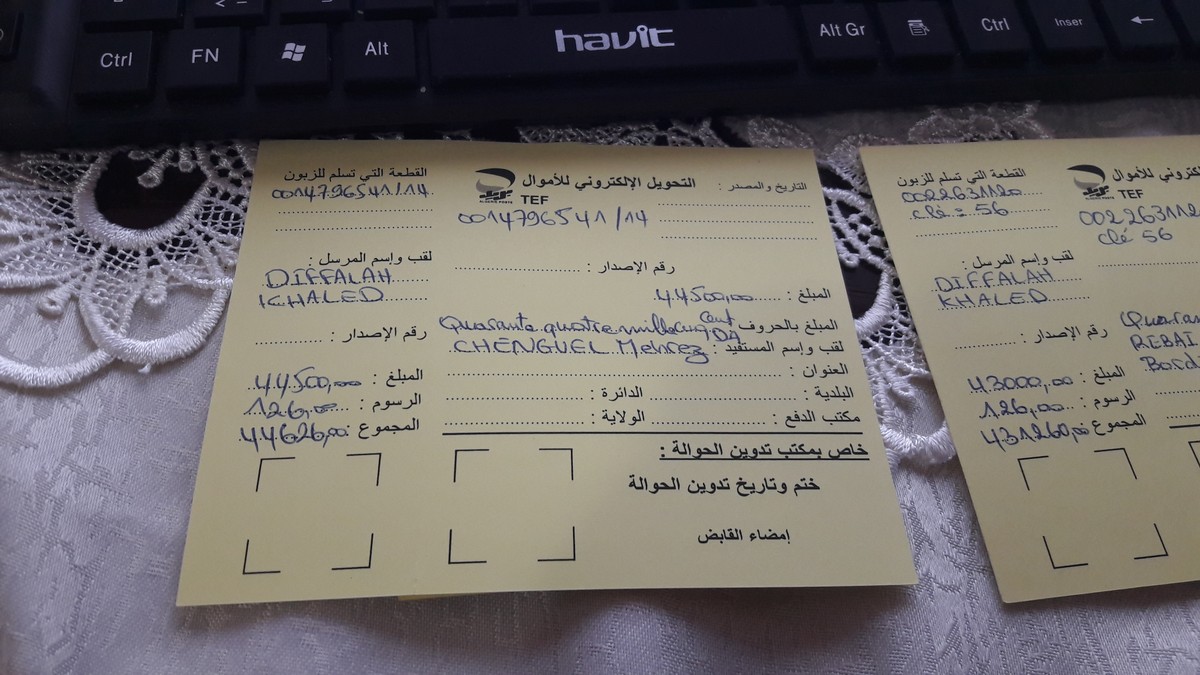 Ctrl
FN
Alt
havit
Alt Gr
Ctrl
Inser
القطعة التي تسلم للزبون
0014796541/14
لقب وإسم المرسل :
DIFFALAH
KHALED
رقم الإصدار :
المبلغ : 44500,00
الرسوم : 126,00
المجموع 44626,00
ALGERIE POSTE
التحويل الإلكتروني للأموال
TEF
0014796541/14
التاريخ والمصدر :
رقم الإصدار :
المبلغ : 44500,00
المبلغ بالحروف Quarante quatre mille cinq Cent DA
لقب وإسم المستفيد : CHENGUEL Mehrez
العنوان :
البلدية : الدائرة :
مكتب الدفع : الولاية :
خاص بمكتب تدوين الحوالة :
ختم وتاريخ تدوين الحوالة
إمضاء القابض
القطعة التي تسلم للزبون
0022631120
clé = 56
لقب وإسم المرسل :
DIFFALAH
KHALED
رقم الإصدار :
المبلغ : 43000,00
الرسوم : 126,00
المجموع 431260,00
كتروني للأموال
TEF
002263112
clé 56
Quaran
REBAI
Bord